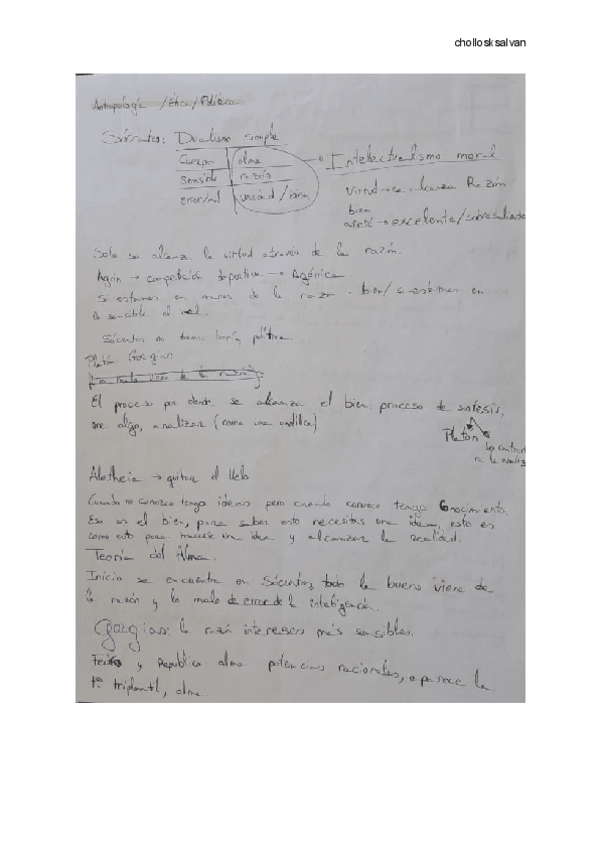 chollosksalvan
Antropología /Ética/Política
Sócrates: Dualismo simple
Cuerpo alma
sensible razón
error/mal verdad/bien
Intelectualismo moral
Virtud → se alcanza Razón
bien
areté → excelente/sobresaliente
Solo se alcanza la virtud a través de la razón.
Agón → competición deportiva → Agónica
Si estamos en manos de la razón bien/ si estamos en
lo sensible el mal.
Sócrates no tiene teoría política.
Platón: Gorgias
El proceso por donde se alcanza el bien: proceso de síntesis,
une algo, analizar (como una
Platón
lo contrario
a la
Aletheia → quitar el velo
Cuando no conozco tengo ideas pero cuando conozco tengo Conocimiento.
Eso es el bien, para saber esto necesitas una idea, esto es
como esto para hacerse una idea y alcanzar la realidad.
Teoría del Alma.
Inicio se encuentra en Sócrates, todo lo bueno viene de
la razón y lo malo de error de la inteligencia.
Gorgias: la razón intereses más sensibles.
Fedro y República alma potencias racionales, aparece la
alma.